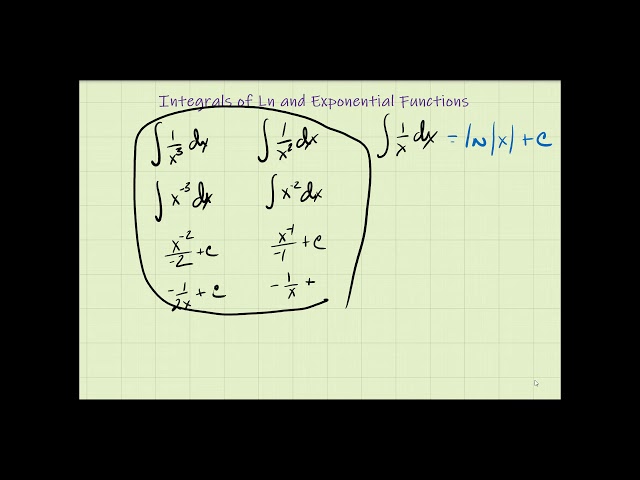 Integrals of Ln and Exponential Functions
∫ 1/x³ dx    ∫ 1/x² dx    ∫ 1/x dx = ln|x| + c
∫ x⁻³ dx    ∫ x⁻² dx
x⁻²/-2 + c    x⁻¹/-1 + c
-1/2x + c    -1/x +